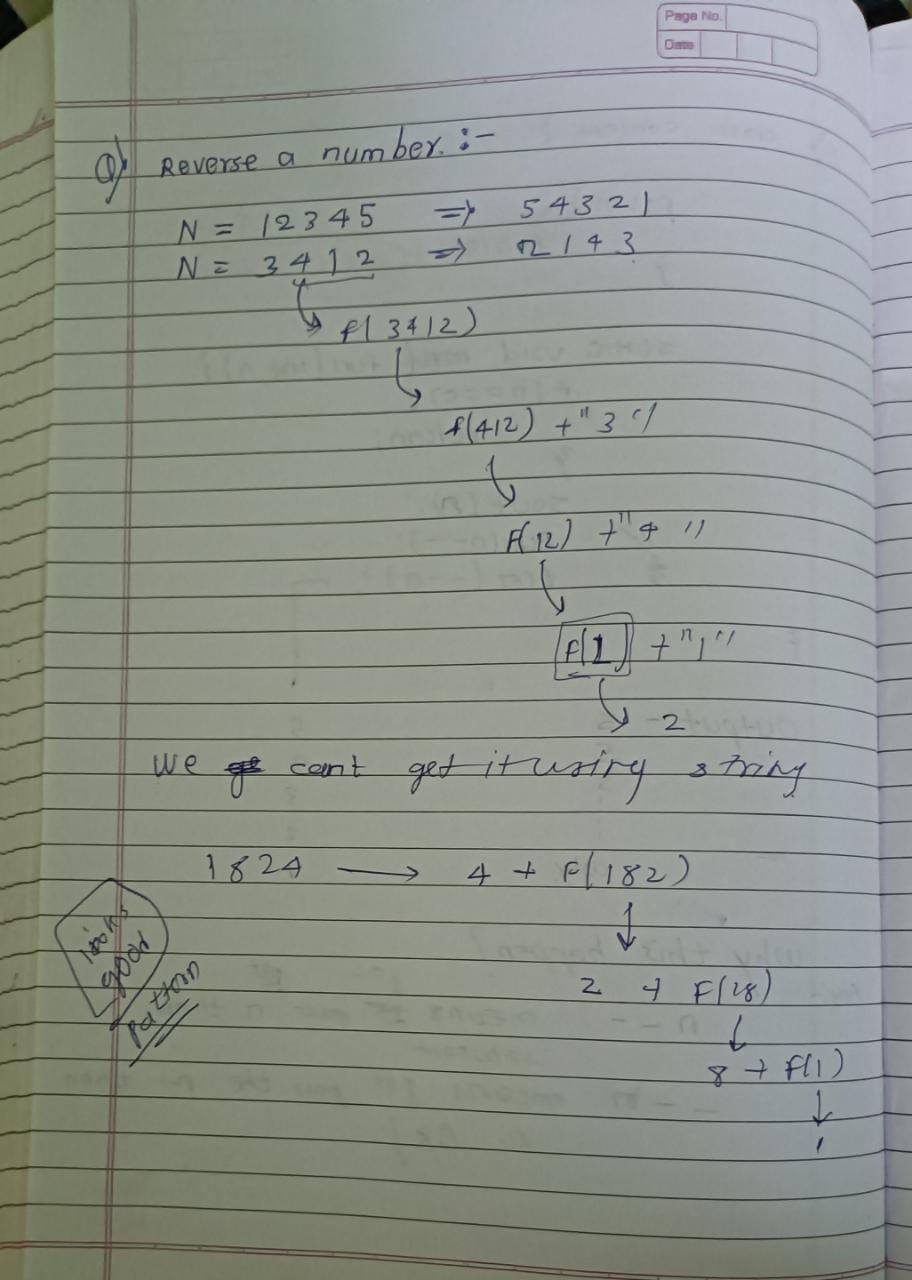 Page No.
Date
Q) Reverse a number :-
N = 12345 ⇒ 54321
N = 3412 ⇒ 2143
f(3412)
f(412) + "3"
F(12) + "4"
F(1) + "1"
2
We can't get it using string
1824 → 4 + F(182)
looks
good
pattern
2 + F(18)
8 + F(1)
1